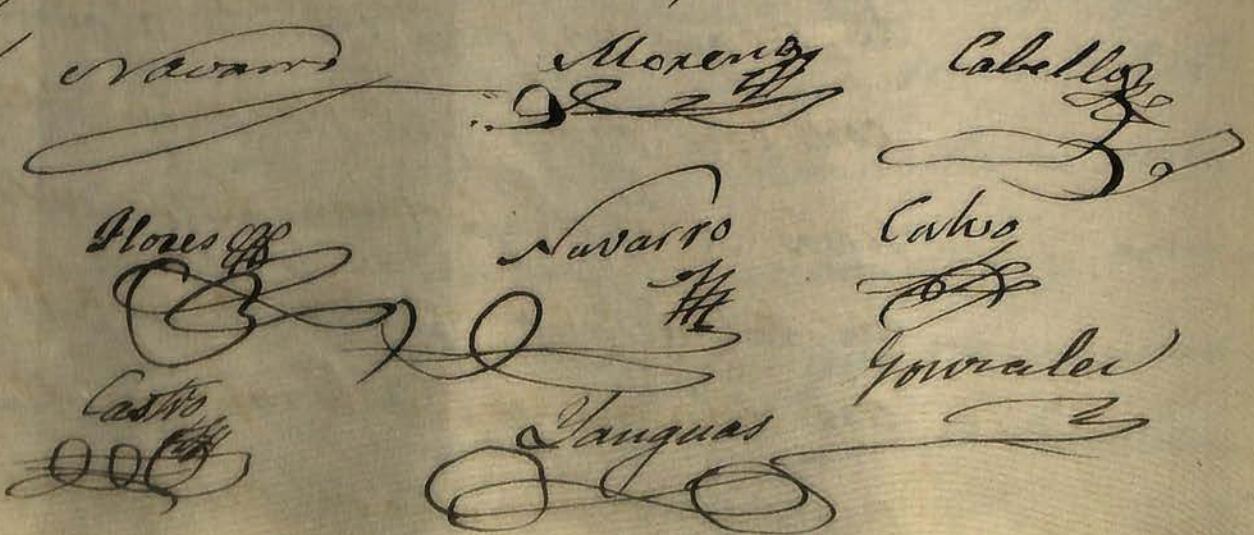 Navarro Moreno Cabello
Flores Navarro Calvo
Gonzalez
Castro Yanguas